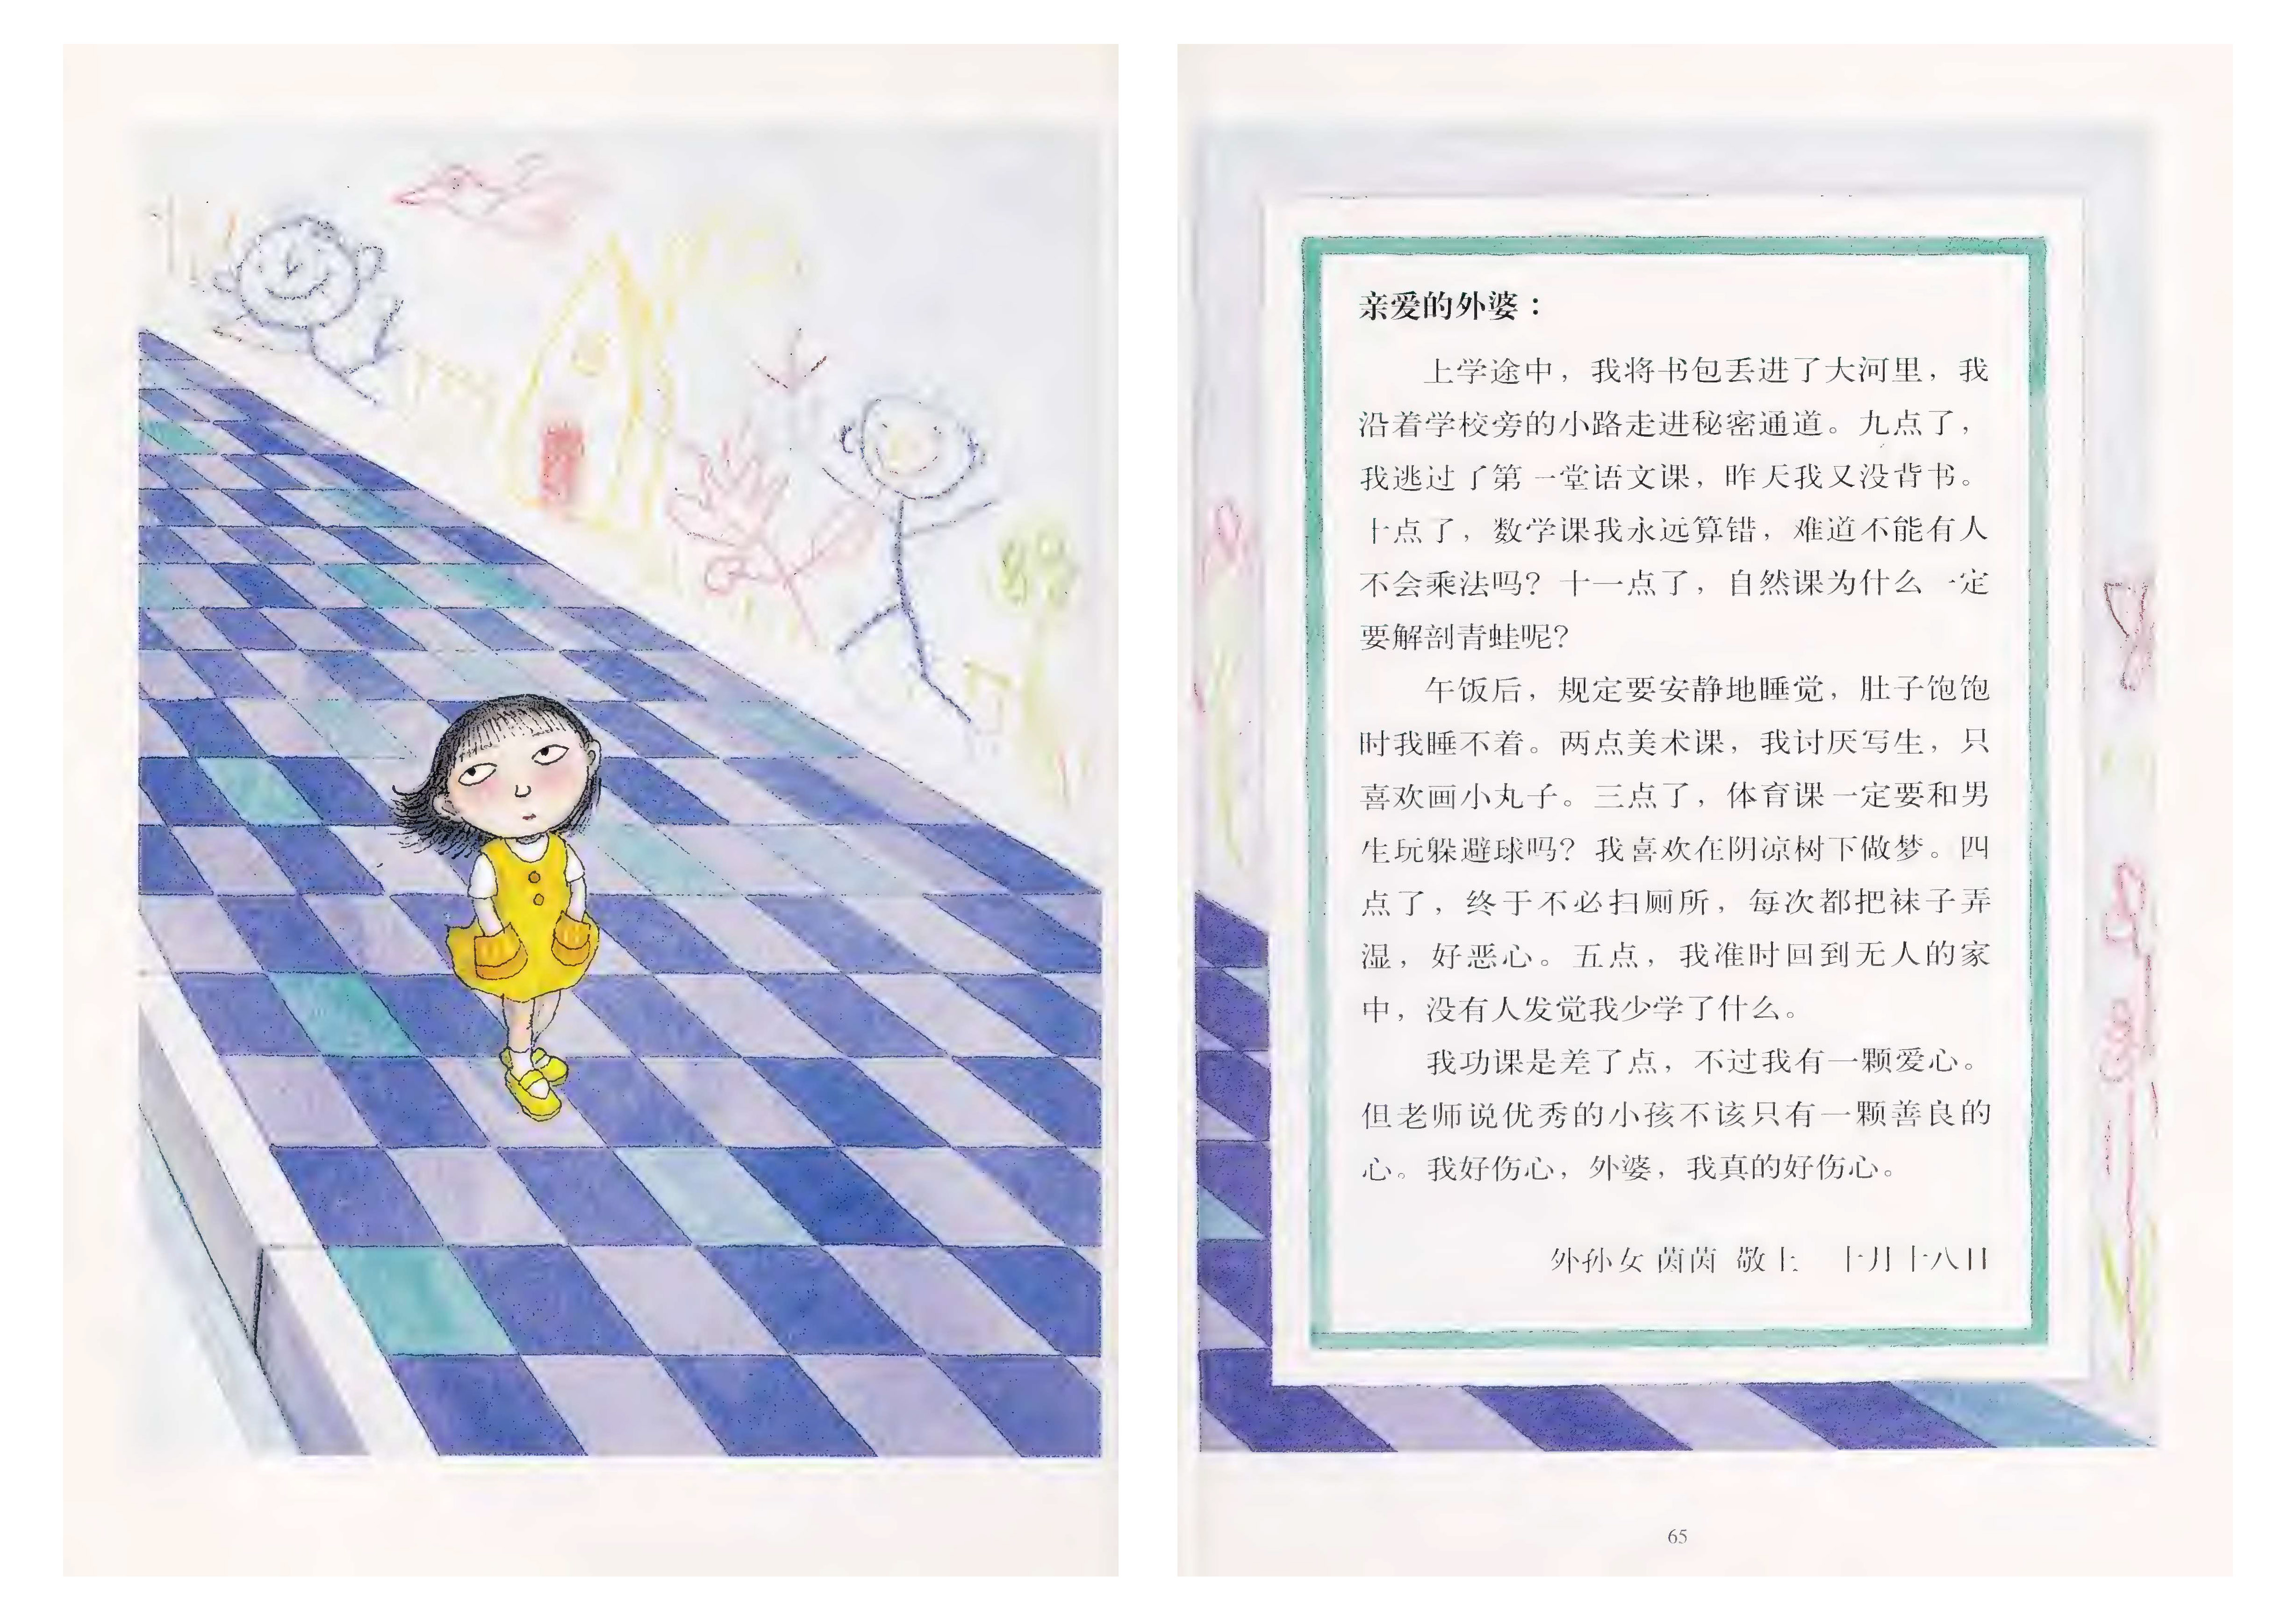 亲爱的外婆：
上学途中，我将书包丢进了大河里，我
沿着学校旁的小路走进秘密通道。九点了，
我逃过了第一堂语文课，昨天我又没背书。
十点了，数学课我永远算错，难道不能有人
不会乘法吗？十一点了，自然课为什么一定
要解剖青蛙呢？
午饭后，规定要安静地睡觉，肚子饱饱
时我睡不着。两点美术课，我讨厌写生，只
喜欢画小丸子。三点了，体育课一定要和男
生玩躲避球吗？我喜欢在阴凉树下做梦。四
点了，终于不必扫厕所，每次都把袜子弄
湿，好恶心。五点，我准时回到无人的家
中，没有人发觉我少学了什么。
我功课是差了点，不过我有一颗爱心。
但老师说优秀的小孩不该只有一颗善良的
心。我好伤心，外婆，我真的好伤心。
外孙女 茵茵 敬上 十月十八日
65